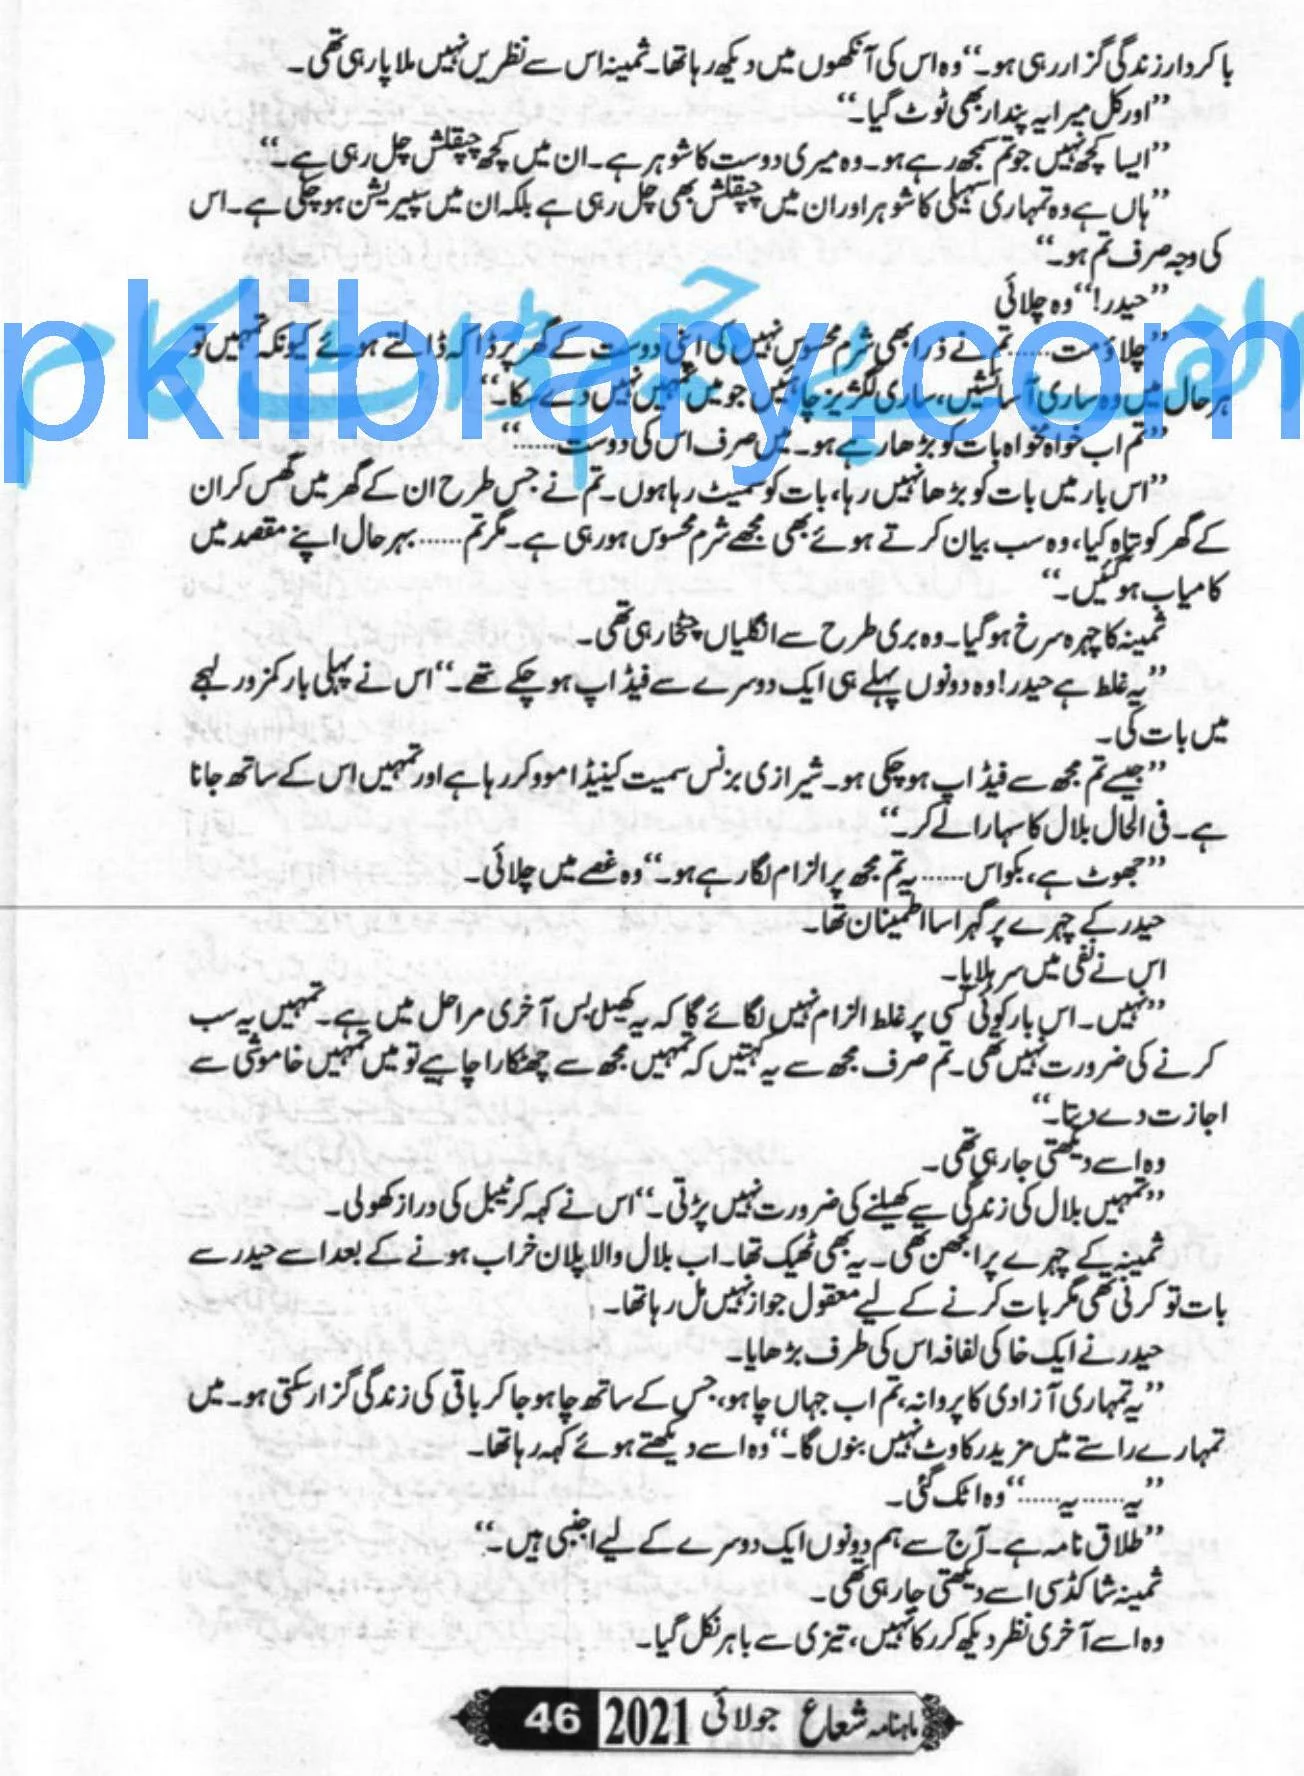 باکردار زندگی گزار رہی ہو۔“ وہ اس کی آنکھوں میں دیکھ رہا تھا۔ ثمینہ اس سے نظریں نہیں ملا پا رہی تھی۔
”اور کل میرا یہ پندار بھی ٹوٹ گیا۔“
”ایسا کچھ نہیں جو تم سمجھ رہے ہو۔ وہ میری دوست کا شوہر ہے۔ ان میں کچھ چپقلش چل رہی ہے۔“
”ہاں ہے وہ تمہاری سہیلی کا شوہر اور ان میں چپقلش بھی چل رہی ہے بلکہ ان میں سیپریشن ہو چکی ہے۔ اس
کی وجہ صرف تم ہو۔“
”حیدر!“ وہ چلائی
”چلاؤ مت...... تم نے ذرا بھی شرم محسوس نہیں کی اپنی دوست کے گھر پر ڈاکہ ڈالتے ہوئے کیونکہ تمہیں تو
ہر حال میں وہ ساری آسائشیں، ساری لگژریز چاہئیں جو میں تمہیں نہیں دے سکا۔“
”تم اب خواہ مخواہ بات کو بڑھا رہے ہو۔ میں صرف اس کی دوست......“
”اس بار میں بات کو بڑھا نہیں رہا، بات کو سمیٹ رہا ہوں۔ تم نے جس طرح ان کے گھر میں گھس کر ان
کے گھر کو تباہ کیا، وہ سب بیان کرتے ہوئے بھی مجھے شرم محسوس ہو رہی ہے۔ مگر تم...... بہرحال اپنے مقصد میں
کامیاب ہو گئیں۔“
ثمینہ کا چہرہ سرخ ہو گیا۔ وہ بری طرح سے انگلیاں چٹخا رہی تھی۔
”یہ غلط ہے حیدر! وہ دونوں پہلے ہی ایک دوسرے سے فیڈ اپ ہو چکے تھے۔“ اس نے پہلی بار کمزور لہجے
میں بات کی۔
”جیسے تم مجھ سے فیڈ اپ ہو چکی ہو۔ شیرازی بزنس سمیت کینیڈا موو کر رہا ہے اور تمہیں اس کے ساتھ جانا
ہے۔ فی الحال بلال کا سہارا لے کر۔“
”جھوٹ ہے، بکواس...... یہ تم مجھ پر الزام لگا رہے ہو۔“ وہ غصے میں چلائی۔
حیدر کے چہرے پر گہرا سا اطمینان تھا۔
اس نے نفی میں سر ہلایا۔
”نہیں۔ اس بار کوئی کسی پر غلط الزام نہیں لگائے گا کہ یہ کھیل بس آخری مراحل میں ہے۔ تمہیں یہ سب
کرنے کی ضرورت نہیں تھی۔ تم صرف مجھ سے یہ کہتیں کہ تمہیں مجھ سے چھٹکارا چاہیے تو میں تمہیں خاموشی سے
اجازت دے دیتا۔“
وہ اسے دیکھتی جا رہی تھی۔
”تمہیں بلال کی زندگی سے کھیلنے کی ضرورت نہیں پڑتی۔“ اس نے کہہ کر ٹیبل کی دراز کھولی۔
ثمینہ کے چہرے پر الجھن تھی۔ یہ بھی ٹھیک تھا۔ اب بلال والا پلان خراب ہونے کے بعد اسے حیدر سے
بات تو کرنی تھی مگر بات کرنے کے لیے معقول جواز نہیں مل رہا تھا۔
حیدر نے ایک خاکی لفافہ اس کی طرف بڑھایا۔
”یہ تمہاری آزادی کا پروانہ، تم اب جہاں چاہو، جس کے ساتھ چاہو جا کر باقی کی زندگی گزار سکتی ہو۔ میں
تمہارے راستے میں مزید رکاوٹ نہیں بنوں گا۔“ وہ اسے دیکھتے ہوئے کہہ رہا تھا۔
”یہ...... یہ......“ وہ اٹک گئی۔
”طلاق نامہ ہے۔ آج سے ہم دونوں ایک دوسرے کے لیے اجنبی ہیں۔“
ثمینہ شاکڈ سی اسے دیکھتی جا رہی تھی۔
وہ اسے آخری نظر دیکھ کر رکا نہیں، تیزی سے باہر نکل گیا۔
ماہنامہ شعاع جولائی 2021 46
pklibrary.com